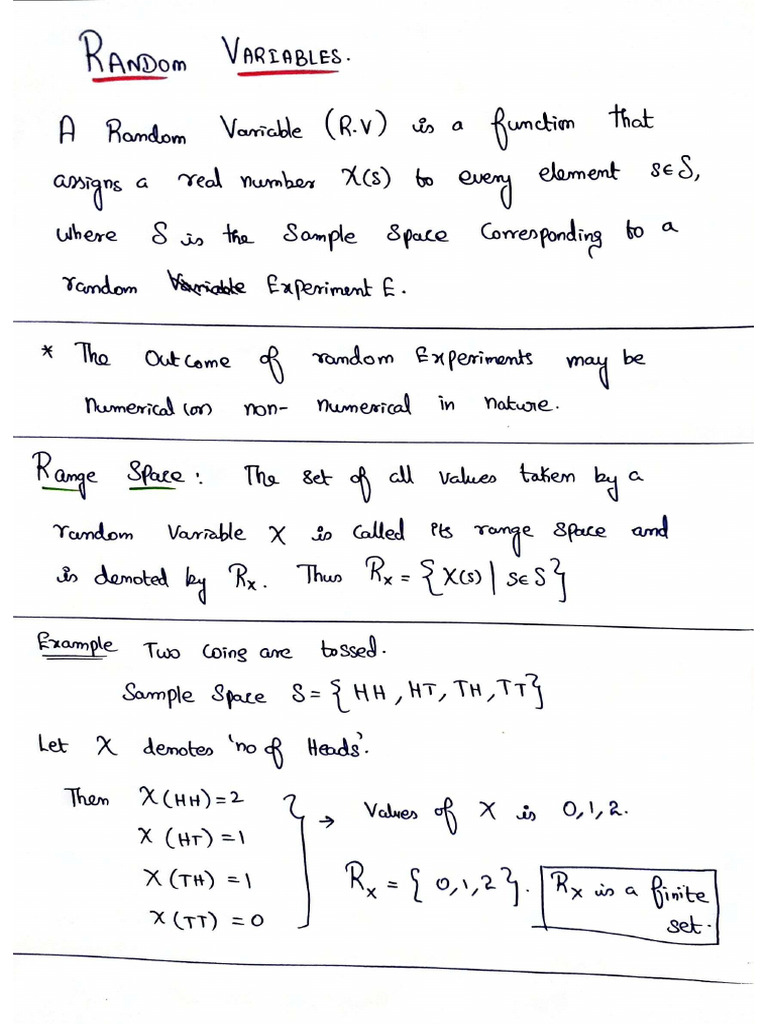 RANDOM VARIABLES.
A Random Variable (R.V) is a function that
assigns a real number X(s) to every element s∈S,
where S is the Sample Space Corresponding to a
random Variable Experiment E.
* The Outcome of random Experiments may be
Numerical (or) non- numerical in nature.
Range Space: The set of all values taken by a
random variable X is called its range space and
is denoted by Rx. Thus Rx = {X(s) | s∈S}
Example Two coins are tossed.
Sample Space S = {HH, HT, TH, TT}
Let X denotes 'no of Heads'.
Then X(HH)=2
X (HT) = 1
X(TH) = 1
X(TT) = 0
} → Values of X is 0,1,2.
Rx = {0,1,2}. Rx is a finite
set.